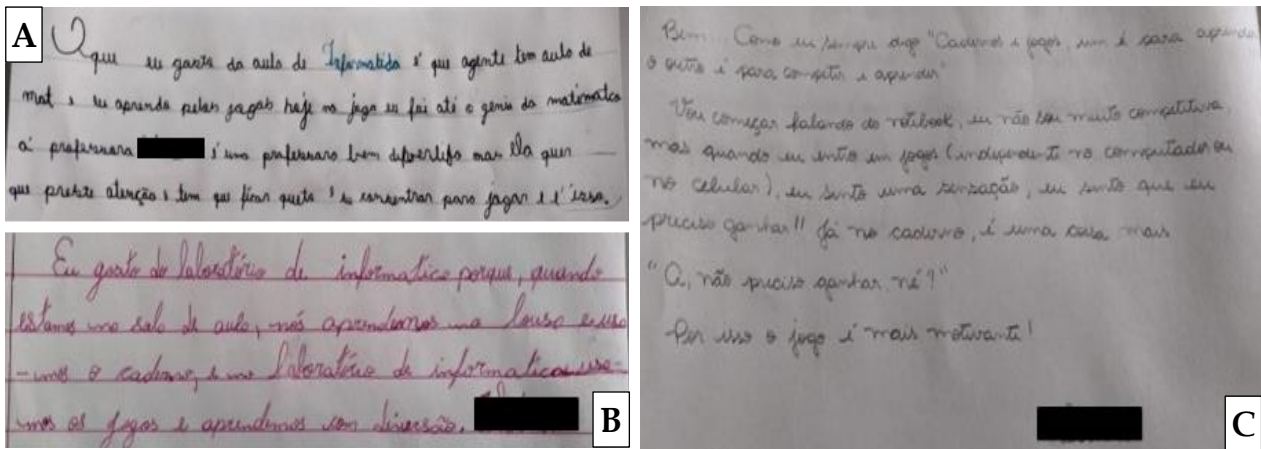 A
O que eu gosto da aula de Informatida é que agente tem aula de
mat, eu aprendo pelos jogos hoje no jogo eu fui até o genio da matematica
a professora é uma professora bem divertida mas Ela quer
que preste atenção, tem que ficar queto, e consentrar para jogar e é isso.
B
Eu gosto do laboratório de informatica porque, quando
estamos na sala de aula, nós aprendemos na lousa e usa
-mos o caderno, e no laboratório de informatica usa-
mos os jogos e aprendemos com diversão.
C
Bem... Como eu sempre digo "Cadernos e jogos, um é para aprender
o outro é para competir e aprender"
Vou começar falando do notibook, eu não sou muito competitiva,
mas quando eu entro em jogos (independente no computador ou
no celular), eu sinto uma sensação, eu sinto que eu
preciso ganhar!! Já no caderno, é uma coisa mais
"A, não preciso ganhar, né?"
Por isso o jogo é mais motivante!